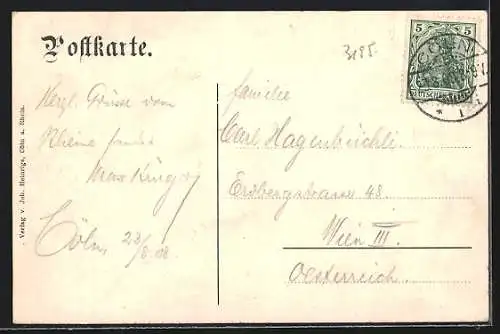 Postkarte.
3195.
5 5
DEUTSCHES REICH
CÖLN
* 1
Verlag v. Joh. Heinrigs, Cöln a. Rhein.
Herzl. Grüsse vom
Rheine
Max
Cöln 23/8.08
Familie
Carl
Erdbergstrasse 48.
Wien III.
Oesterreich.